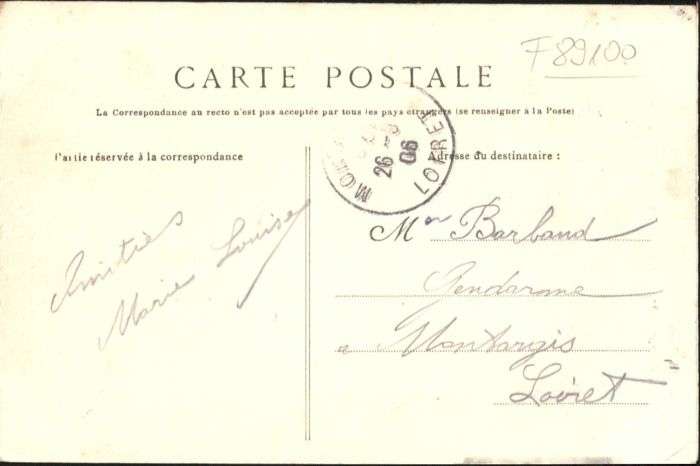 F89100
CARTE POSTALE
La Correspondance au recto n'est pas acceptée par tous les pays étrangers (se renseigner à la Poste)
Partie réservée à la correspondance
Adresse du destinataire :
26
06
LOIRET
Amitiés
Marie Louise
Mr Barband
Gendarme
a Montargis
Loiret